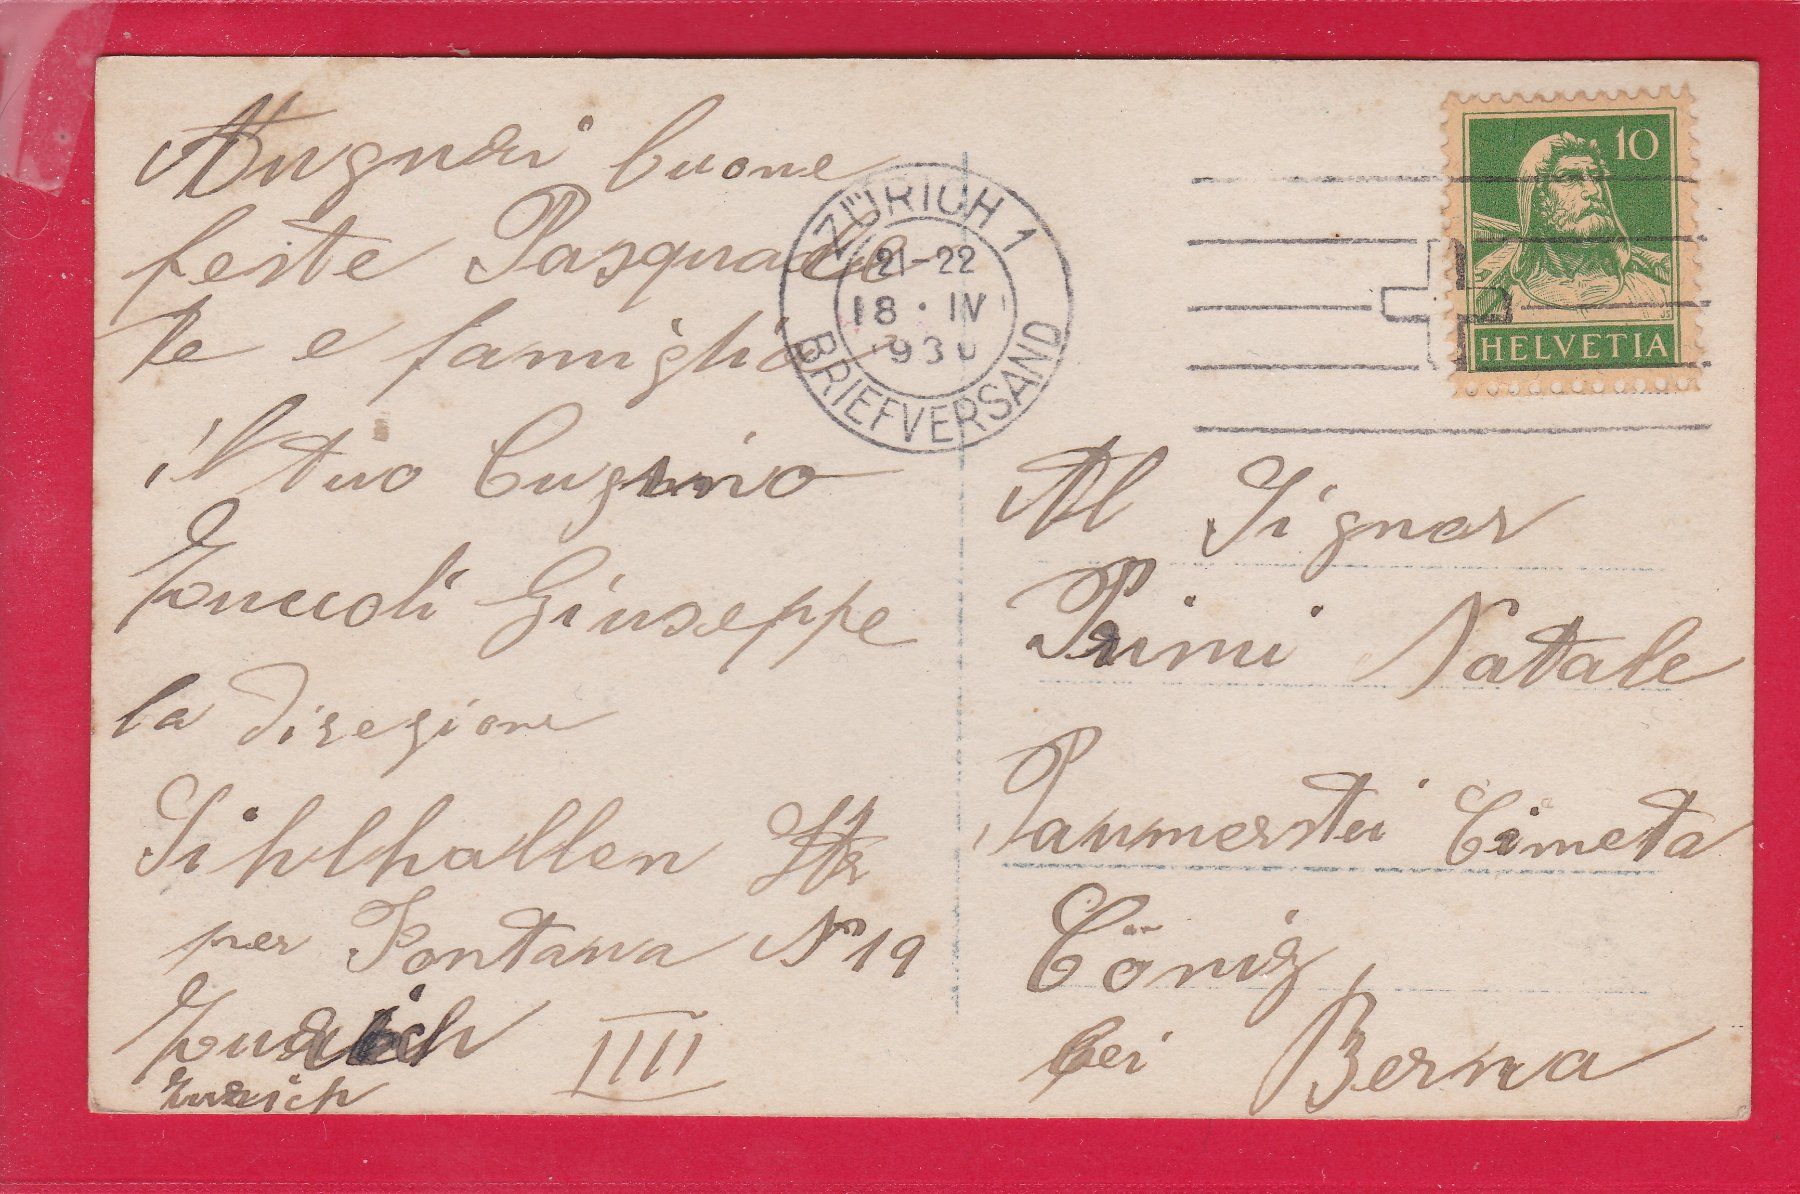 Auguri buone
feste Pasquale
te e famiglia
il tuo Cugino
Zuccoli Giuseppe
la direzione
Sihlhallen Str
per Fontana No 19
Zurich IIII
Zurich
ZÜRICH 1
21-22
18·IV
1930
BRIEFVERSAND
10
HELVETIA
Al Signor
Primi Natale
Cöniz,
bei Berna